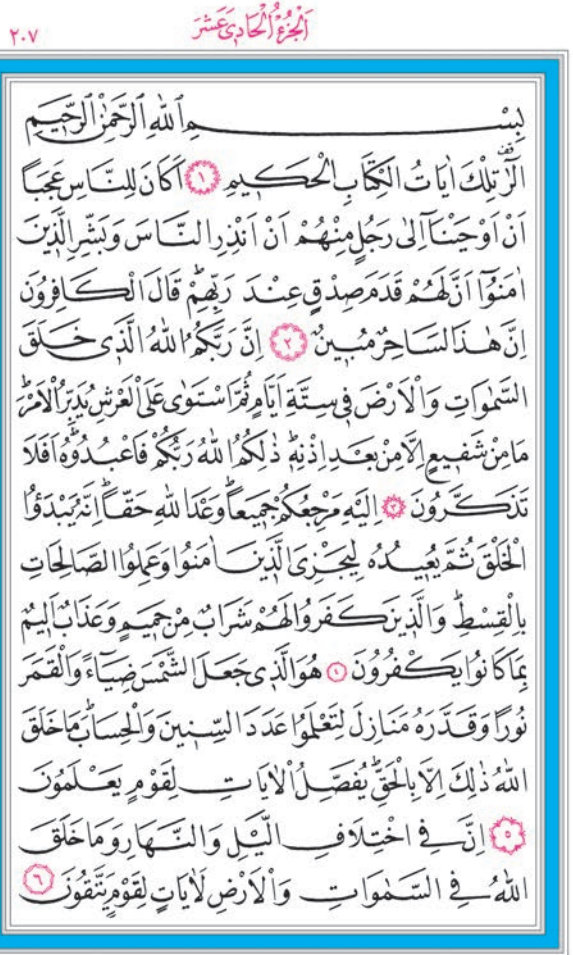 اَلْجُزْءُ الْحَادِىَ عَشَرَ
٢٠٧
بِسْــــمِ اللّٰهِ الرَّحْمٰنِ الرَّحٖيمِ
الٓرٰ تِلْكَ اٰيَاتُ الْكِتَابِ الْحَكٖيمِ ﴿١﴾ اَكَانَ لِلنَّاسِ عَجَبًا
اَنْ اَوْحَيْنَٓا اِلٰى رَجُلٍ مِنْهُمْ اَنْ اَنْذِرِ النَّاسَ وَبَشِّرِ الَّذٖينَ
اٰمَنُٓوا اَنَّ لَهُمْ قَدَمَ صِدْقٍ عِنْدَ رَبِّهِمْؕ قَالَ الْكَافِرُونَ
اِنَّ هٰذَا لَسَاحِرٌ مُبٖينٌ ﴿٢﴾ اِنَّ رَبَّكُمُ اللّٰهُ الَّذٖى خَلَقَ
السَّمٰوَاتِ وَالْاَرْضَ فٖى سِتَّةِ اَيَّامٍ ثُمَّ اسْتَوٰى عَلَى الْعَرْشِ يُدَبِّرُ الْاَمْرَؕ
مَا مِنْ شَفٖيعٍ اِلَّا مِنْ بَعْدِ اِذْنِهٖؕ ذٰلِكُمُ اللّٰهُ رَبُّكُمْ فَاعْبُدُوهُؕ اَفَلَا
تَذَكَّرُونَ ﴿٣﴾ اِلَيْهِ مَرْجِعُكُمْ جَمٖيعًاؕ وَعْدَ اللّٰهِ حَقًّاؕ اِنَّهُ يَبْدَؤُا
الْخَلْقَ ثُمَّ يُعٖيدُهُ لِيَجْزِىَ الَّذٖينَ اٰمَنُوا وَعَمِلُوا الصَّالِحَاتِ
بِالْقِسْطِؕ وَالَّذٖينَ كَفَرُوا لَهُمْ شَرَابٌ مِنْ حَمٖيمٍ وَعَذَابٌ اَلٖيمٌ
بِمَا كَانُوا يَكْفُرُونَ ﴿٤﴾ هُوَ الَّذٖى جَعَلَ الشَّمْسَ ضِيَٓاءً وَالْقَمَرَ
نُورًا وَقَدَّرَهُ مَنَازِلَ لِتَعْلَمُوا عَدَدَ السِّنٖينَ وَالْحِسَابَؕ مَا خَلَقَ
اللّٰهُ ذٰلِكَ اِلَّا بِالْحَقِّۚ يُفَصِّلُ الْاٰيَاتِ لِقَوْمٍ يَعْلَمُونَ
﴿٥﴾ اِنَّ فٖى اخْتِلَافِ الَّيْلِ وَالنَّهَارِ وَمَا خَلَقَ
اللّٰهُ فِى السَّمٰوَاتِ وَالْاَرْضِ لَاٰيَاتٍ لِقَوْمٍ يَتَّقُونَ ﴿٦﴾